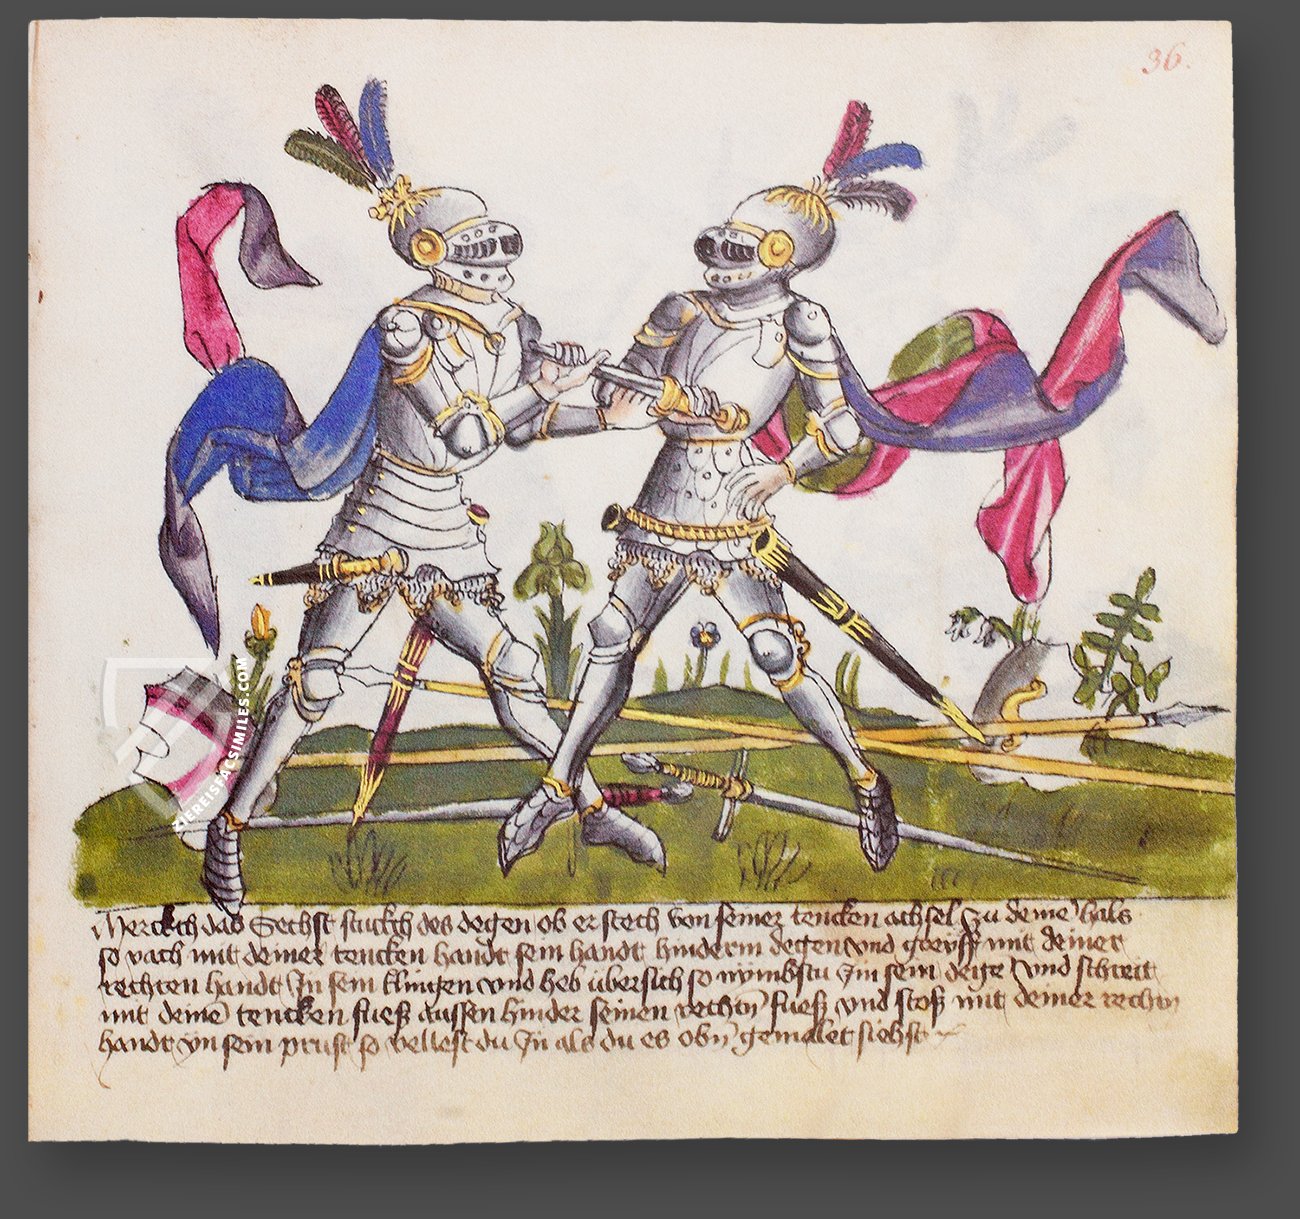 36.
Merckch das Sechst stuckch des degen ob er stech von seiner tencken achsel zu deinē hals
so vach mit deiner tencken handt sein handt hinderm degen vnd greyff mit deiner
rechten handt In sein klingen vnd heb übersich so nymbstu Im sein dege vnd schreit
mit deinē tencken fuess aussen hinder seinen rechtn̄ fuess vnd stoss mit deiner rechtn̄
handt yn sein prust so vellest du In als du es obn̄ gemalet siehst
ZIEREISFACSIMILES.COM